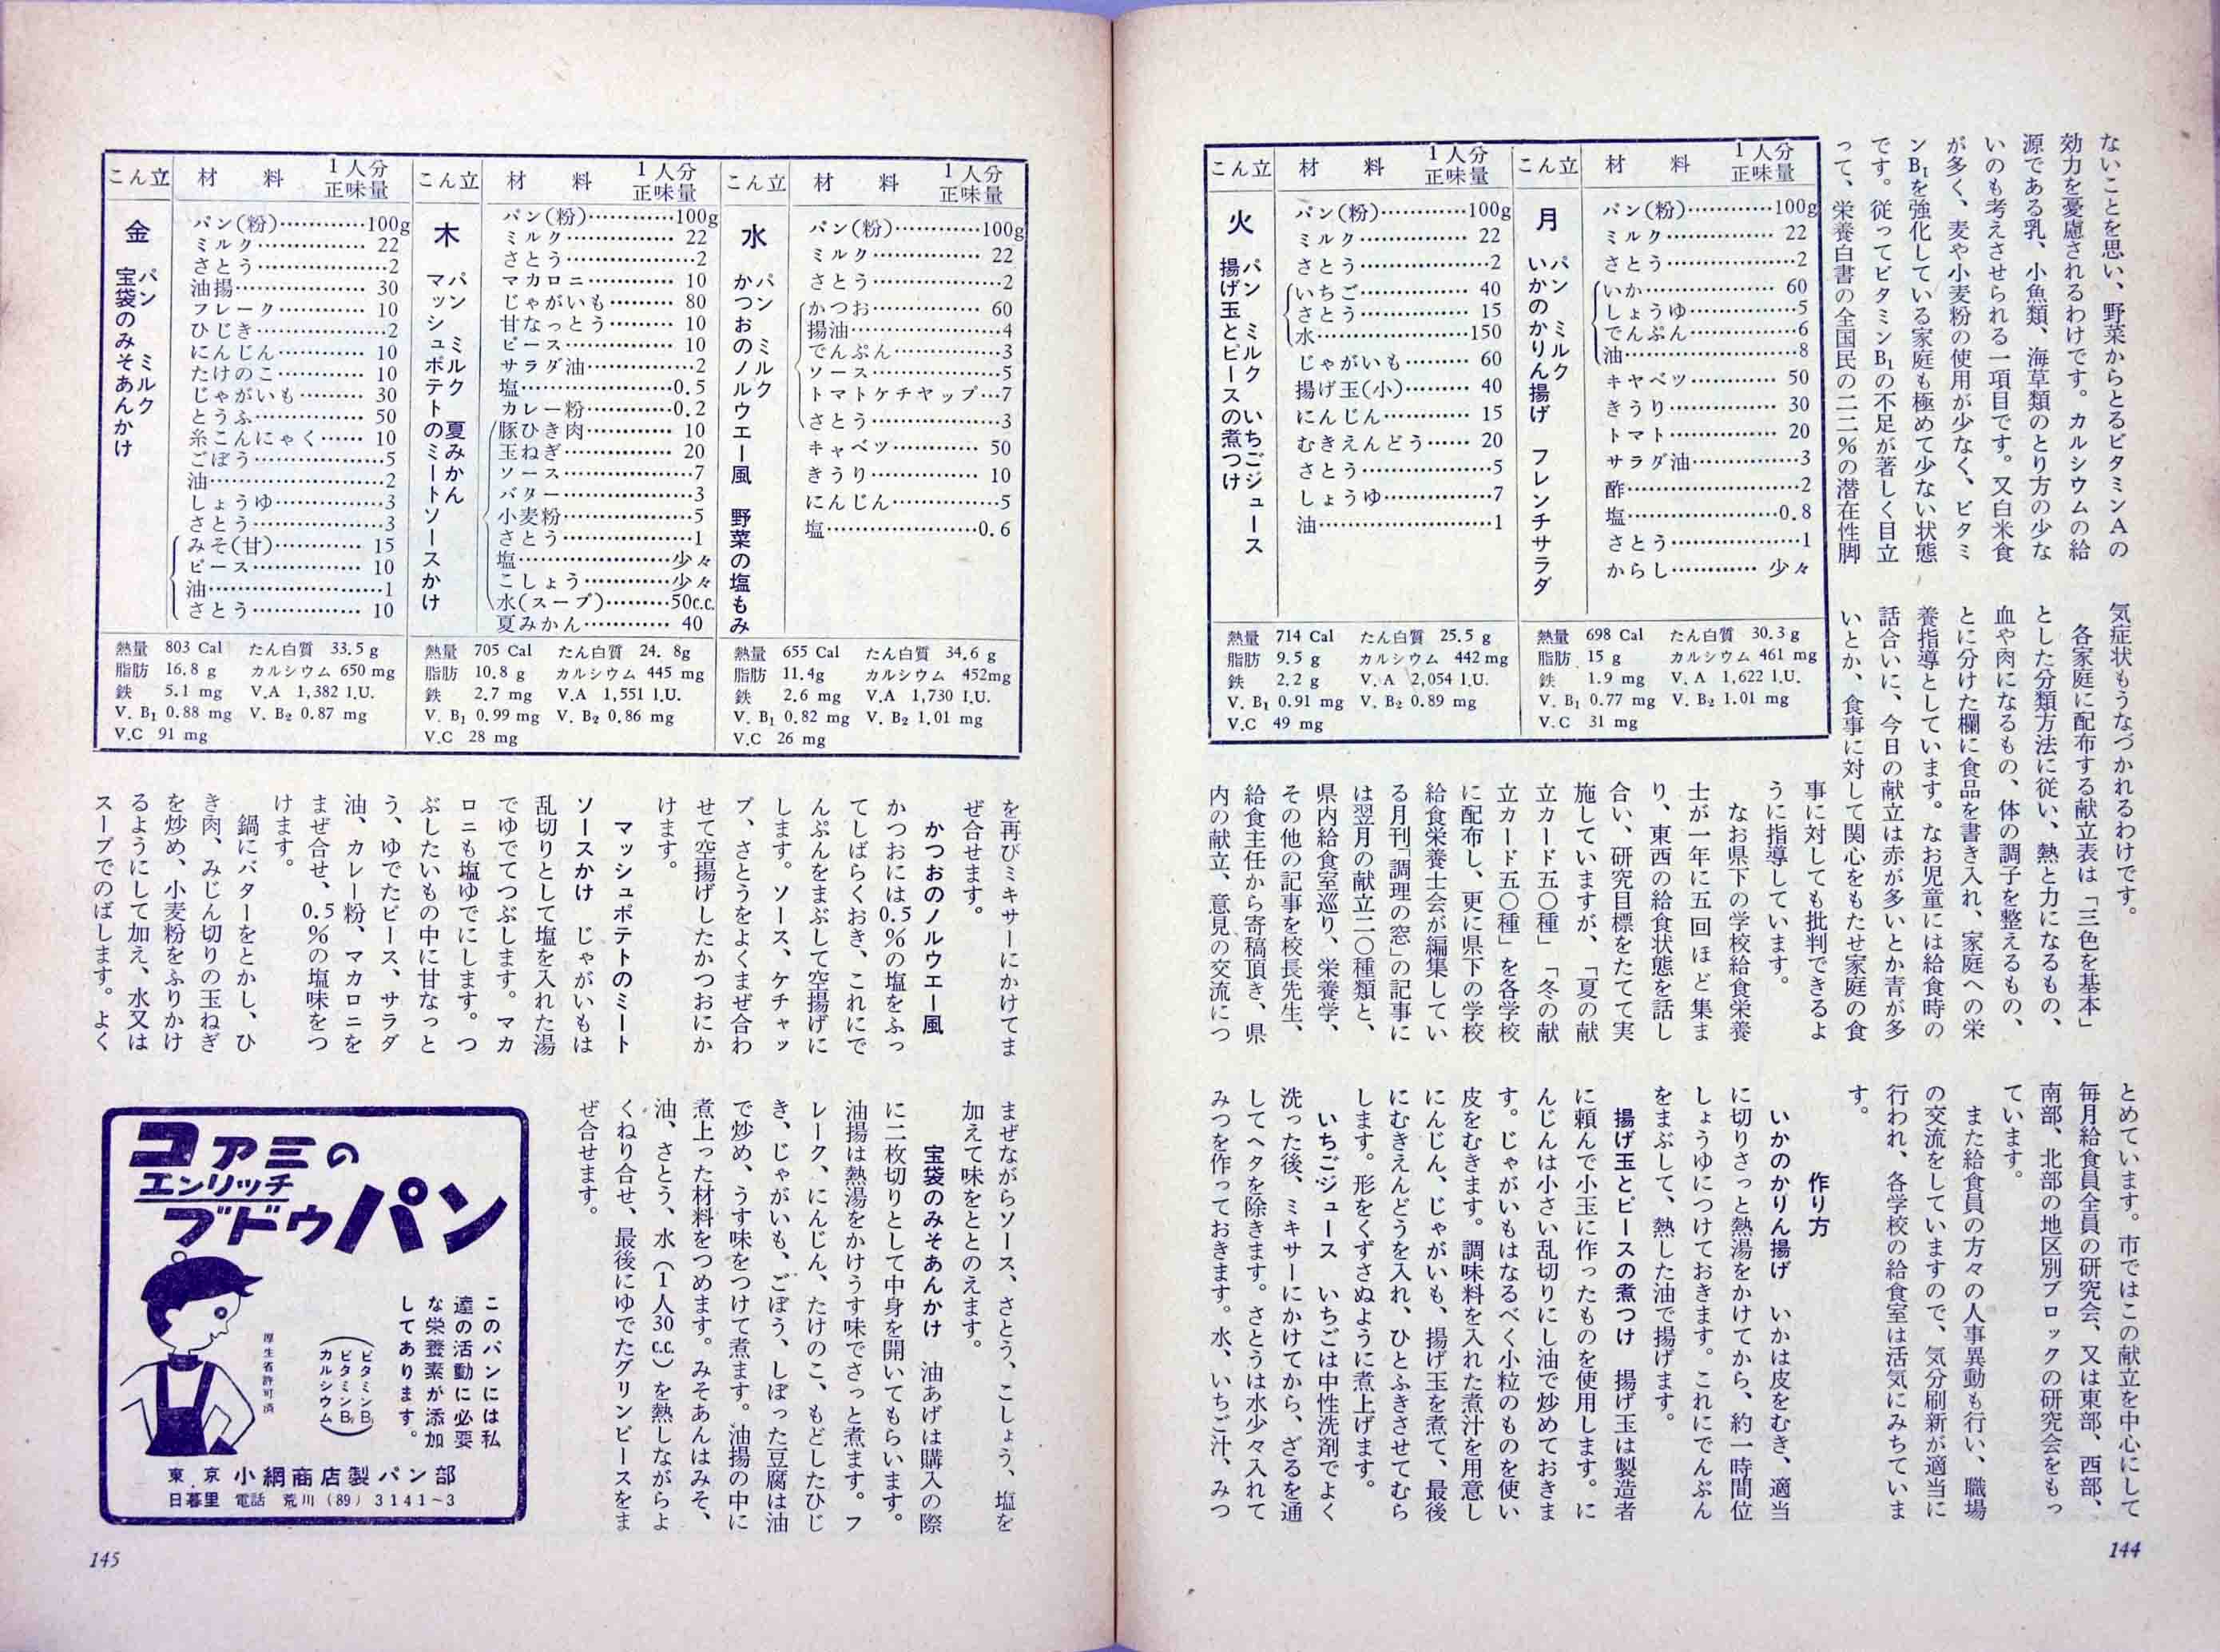 ないことを思い、野菜からとるビタミンAの
効力を憂慮されるわけです。カルシウムの給
源である乳、小魚類、海草類のとり方の少な
いのも考えさせられる一項目です。又白米食
が多く、麦や小麦粉の使用が少なく、ビタミ
ンB₁を強化している家庭も極めて少ない状態
です。従ってビタミンB₁の不足が著しく目立
って、栄養白書の全国民の二二%の潜在性脚
気症状もうなづかれるわけです。
各家庭に配布する献立表は「三色を基本」
とした分類方法に従い、熱と力になるもの、
血や肉になるもの、体の調子を整えるもの、
とに分けた欄に食品を書き入れ、家庭への栄
養指導としています。なお児童には給食時の
話合いに、今日の献立は赤が多いとか青が多
いとか、食事に対して関心をもたせ家庭の食
事に対しても批判できるよ
うに指導しています。
なお県下の学校給食栄養
士が一年に五回ほど集ま
り、東西の給食状態を話し
合い、研究目標をたてて実
施していますが、「夏の献
立カード五〇種」「冬の献
立カード五〇種」を各学校
に配布し、更に県下の学校
給食栄養士会が編集してい
る月刊「調理の窓」の記事に
は翌月の献立二〇種類と、
県内給食室巡り、栄養学、
その他の記事を校長先生、
給食主任から寄稿頂き、県
内の献立、意見の交流につ
とめています。市ではこの献立を中心にして
毎月給食員全員の研究会、又は東部、西部、
南部、北部の地区別ブロックの研究会をもっ
ています。
また給食員の方々の人事異動も行い、職場
の交流をしていますので、気分刷新が適当に
行われ、各学校の給食室は活気にみちていま
す。
作り方
いかのかりん揚げ いかは皮をむき、適当
に切りさっと熱湯をかけてから、約一時間位
しょうゆにつけておきます。これにでんぷん
をまぶして、熱した油で揚げます。
揚げ玉とピースの煮つけ 揚げ玉は製造者
に頼んで小玉に作ったものを使用します。に
んじんは小さい乱切りにし油で炒めておきま
す。じゃがいもはなるべく小粒のものを使い
皮をむきます。調味料を入れた煮汁を用意し
にんじん、じゃがいも、揚げ玉を煮て、最後
にむきえんどうを入れ、ひとふきさせてむら
します。形をくずさぬように煮上げます。
いちごジュース いちごは中性洗剤でよく
洗った後、ミキサーにかけてから、ざるを通
してヘタを除きます。さとうは水少々入れて
みつを作っておきます。水、いちご汁、みつ
こん立 材料 1人分正味量
月 パン ミルク いかのかりん揚げ フレンチサラダ
パン(粉)…………100g
ミルク…………… 22
さとう………………2
いか……………… 60
しょうゆ……………5
でんぷん……………6
油……………………8
キャベツ………… 50
きうり…………… 30
トマト…………… 20
サラダ油……………3
酢……………………2
塩…………………0.8
さとう………………1
からし………… 少々
熱量 698 Cal たん白質 30.3 g
脂肪 15 g カルシウム 461 mg
鉄 1.9 mg V.A 1,622 I.U.
V. B₁ 0.77 mg V. B₂ 1.01 mg
V.C 31 mg
こん立 材料 1人分正味量
火 パン ミルク いちごジュース 揚げ玉とピースの煮つけ
パン(粉)…………100g
ミルク…………… 22
さとう………………2
いちご…………… 40
さとう…………… 15
水…………………150
じゃがいも……… 60
揚げ玉(小)……… 40
にんじん………… 15
むきえんどう…… 20
さとう………………5
しょうゆ……………7
油……………………1
熱量 714 Cal たん白質 25.5 g
脂肪 9.5 g カルシウム 442 mg
鉄 2.2 g V. A 2,054 I.U.
V. B₁ 0.91 mg V. B₂ 0.89 mg
V.C 49 mg
144
こん立 材料 1人分正味量
水 パン ミルク かつおのノルウエー風 野菜の塩もみ
パン(粉)…………100g
ミルク…………… 22
さとう………………2
かつお…………… 60
揚油…………………4
でんぷん……………3
ソース………………5
トマトケチャップ…7
さとう………………3
キャベツ………… 50
きうり…………… 10
にんじん……………5
塩…………………0.6
熱量 655 Cal たん白質 34.6 g
脂肪 11.4g カルシウム 452mg
鉄 2.6 mg V.A 1,730 I.U.
V. B₁ 0.82 mg V. B₂ 1.01 mg
V.C 26 mg
こん立 材料 1人分正味量
木 パン ミルク 夏みかん マッシュポテトのミートソースかけ
パン(粉)…………100g
ミルク…………… 22
さとう………………2
マカロニ………… 10
じゃがいも……… 80
甘なっとう……… 10
ピース…………… 10
サラダ油……………2
塩…………………0.5
カレー粉…………0.2
豚ひき肉………… 10
玉ねぎ…………… 20
ソース………………7
バター………………3
小麦粉………………5
さとう………………1
塩…………………少々
こしょう…………少々
水(スープ)………50c.c.
夏みかん………… 40
熱量 705 Cal たん白質 24. 8g
脂肪 10.8 g カルシウム 445 mg
鉄 2.7 mg V.A 1,551 I.U.
V. B₁ 0.99 mg V. B₂ 0.86 mg
V.C 28 mg
こん立 材料 1人分正味量
金 パン ミルク 宝袋のみそあんかけ
パン(粉)…………100g
ミルク…………… 22
さとう………………2
油揚……………… 30
フレーク………… 10
ひじき………………2
にんじん………… 10
たけのこ………… 10
じゃがいも……… 30
とうふ…………… 50
糸こんにゃく…… 10
ごぼう………………5
油……………………2
しょうゆ……………3
さとう………………3
みそ(甘)………… 15
ピース…………… 10
油……………………1
さとう…………… 10
熱量 803 Cal たん白質 33.5 g
脂肪 16.8 g カルシウム 650 mg
鉄 5.1 mg V.A 1,382 I.U.
V. B₁ 0.88 mg V. B₂ 0.87 mg
V.C 91 mg
を再びミキサーにかけてま
ぜ合せます。
かつおのノルウエー風
かつおには0.5%の塩をふっ
てしばらくおき、これにで
んぷんをまぶして空揚げに
します。ソース、ケチャッ
プ、さとうをよくまぜ合わ
せて空揚げしたかつおにか
けます。
マッシュポテトのミート
ソースかけ じゃがいもは
乱切りとして塩を入れた湯
でゆでてつぶします。マカ
ロニも塩ゆでにします。つ
ぶしたいもの中に甘なっと
う、ゆでたピース、サラダ
油、カレー粉、マカロニを
まぜ合せ、0.5%の塩味をつ
けます。
鍋にバターをとかし、ひ
き肉、みじん切りの玉ねぎ
を炒め、小麦粉をふりかけ
るようにして加え、水又は
スープでのばします。よく
まぜながらソース、さとう、こしょう、塩を
加えて味をととのえます。
宝袋のみそあんかけ 油あげは購入の際
に二枚切りとして中身を開いてもらいます。
油揚は熱湯をかけうす味でさっと煮ます。フ
レーク、にんじん、たけのこ、もどしたひじ
き、じゃがいも、ごぼう、しぼった豆腐は油
で炒め、うす味をつけて煮ます。油揚の中に
煮上った材料をつめます。みそあんはみそ、
油、さとう、水(1人30c.c.)を熱しながらよ
くねり合せ、最後にゆでたグリンピースをま
ぜ合せます。
コアミの
エンリッチ
ブドウパン
このパンには私
達の活動に必要
な栄養素が添加
してあります。
(ビタミンB₁
ビタミンB₂
カルシウム)
厚生省許可済
東京 小網商店製パン部
日暮里 電話 荒川(89)3141~3
145